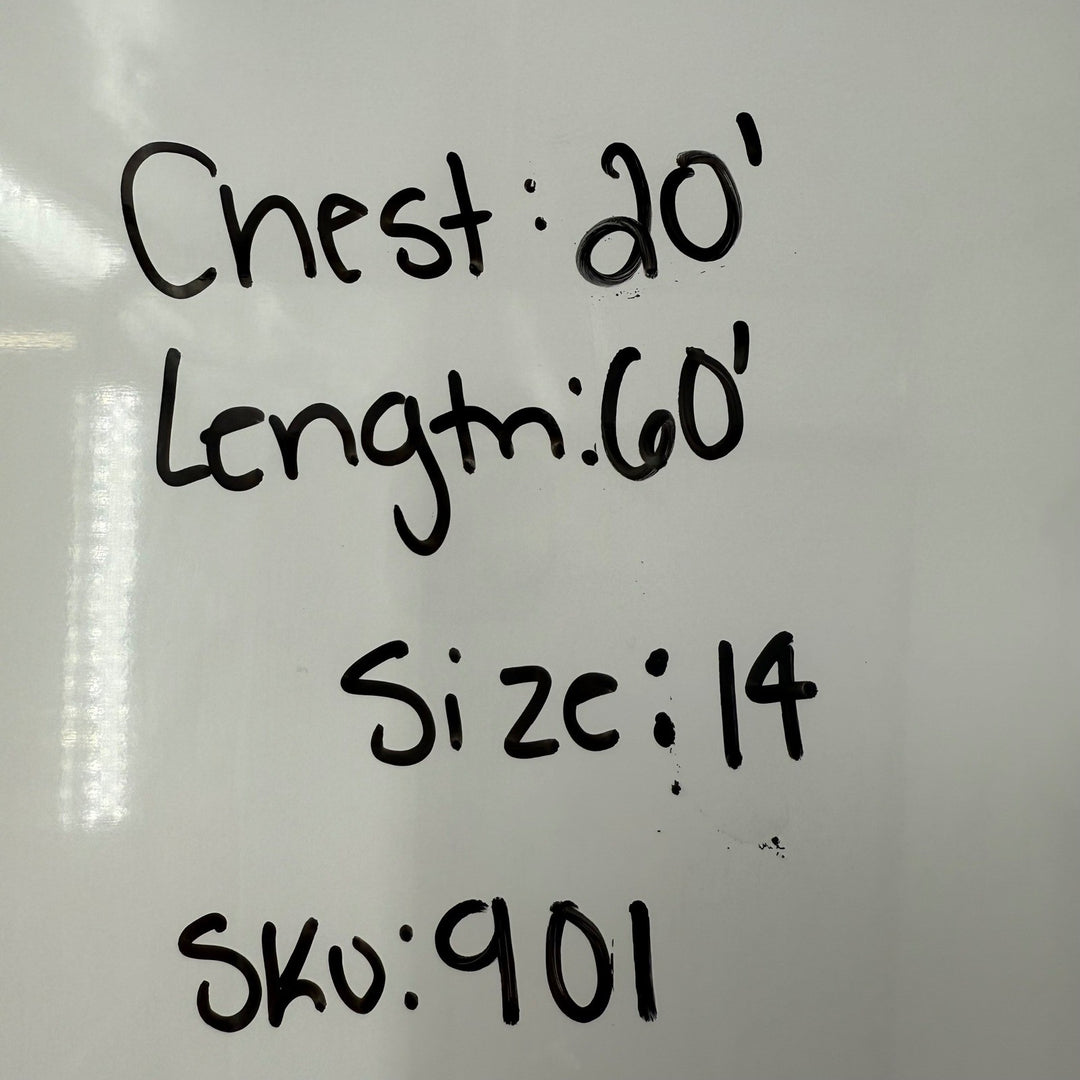 Chest: 20'
Length: 60'
Size: 14
SKU: 901